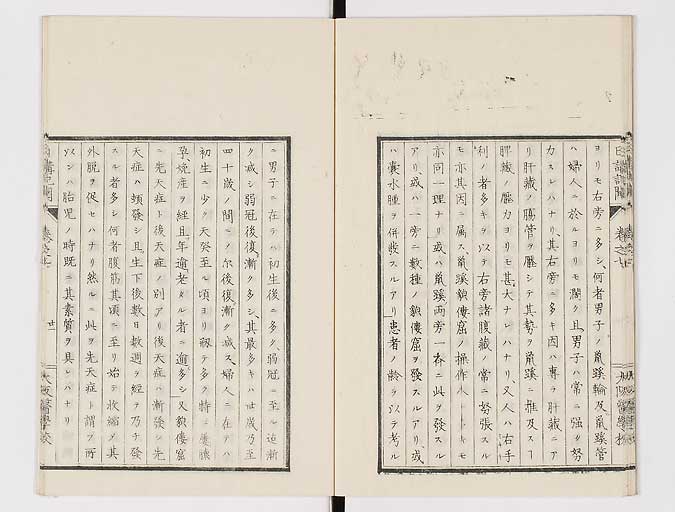 ヨリモ右旁ニ多シ、何者男子ノ鼠蹊輪及鼠蹊管
ハ婦人ニ於ルヨリモ濶ク且男子ハ常ニ強ク努
カスレハナリ、其右旁ニ多キ因ハ專ラ肝藏ニア
リ肝藏ノ腸管ヲ壓シテ其勢ヲ鼠蹊ニ推及スヿ
脾藏ノ壓力ヨリモ甚大ナレハナリ、又人ハ右手
利ノ者多キヲ以テ右旁諸腹藏ノ常ニ努張スル
モ亦其因ニ属ス、鼠蹊
亦同一理ナリ或ハ鼠蹊両旁一齊ニ此ヲ發スル
アリ、或ハ一旁ニ數種ノ ヲ發スルアリ、或
ハ嚢水腫ヲ併發スルアリ患者ノ齢ヲ以テ考ル
ニ男子ニ在テハ初生後ニ多ク、弱冠ニ至ル迠漸
ク減シ弱冠後復漸ク多シ、其最多キハ卅歳乃至
四十歳ノ間ニノ尓後復漸ク減ス、婦人ニ在テハ
初生ニ少ク天癸至ル頃ヨリ テ多ク特ニ
孕娩産ヲ經且年逾老タル者ニ逾多シ又
ニ先天症ト後天症ノ別アリ後天症ハ漸發シ先
天症ハ頓發シ且生下後數日數週ヲ經テ乃チ發
スル者多シ何者腹筋其頃ニ至リ始テ收縮ヲ其
外脱ヲ促セハナリ然ルニ此ヲ先天症ト謂フ所
以ンハ胎児ノ時既ニ其素質ヲ具レハナリ
日講記聞 卷之七
大阪醫學校